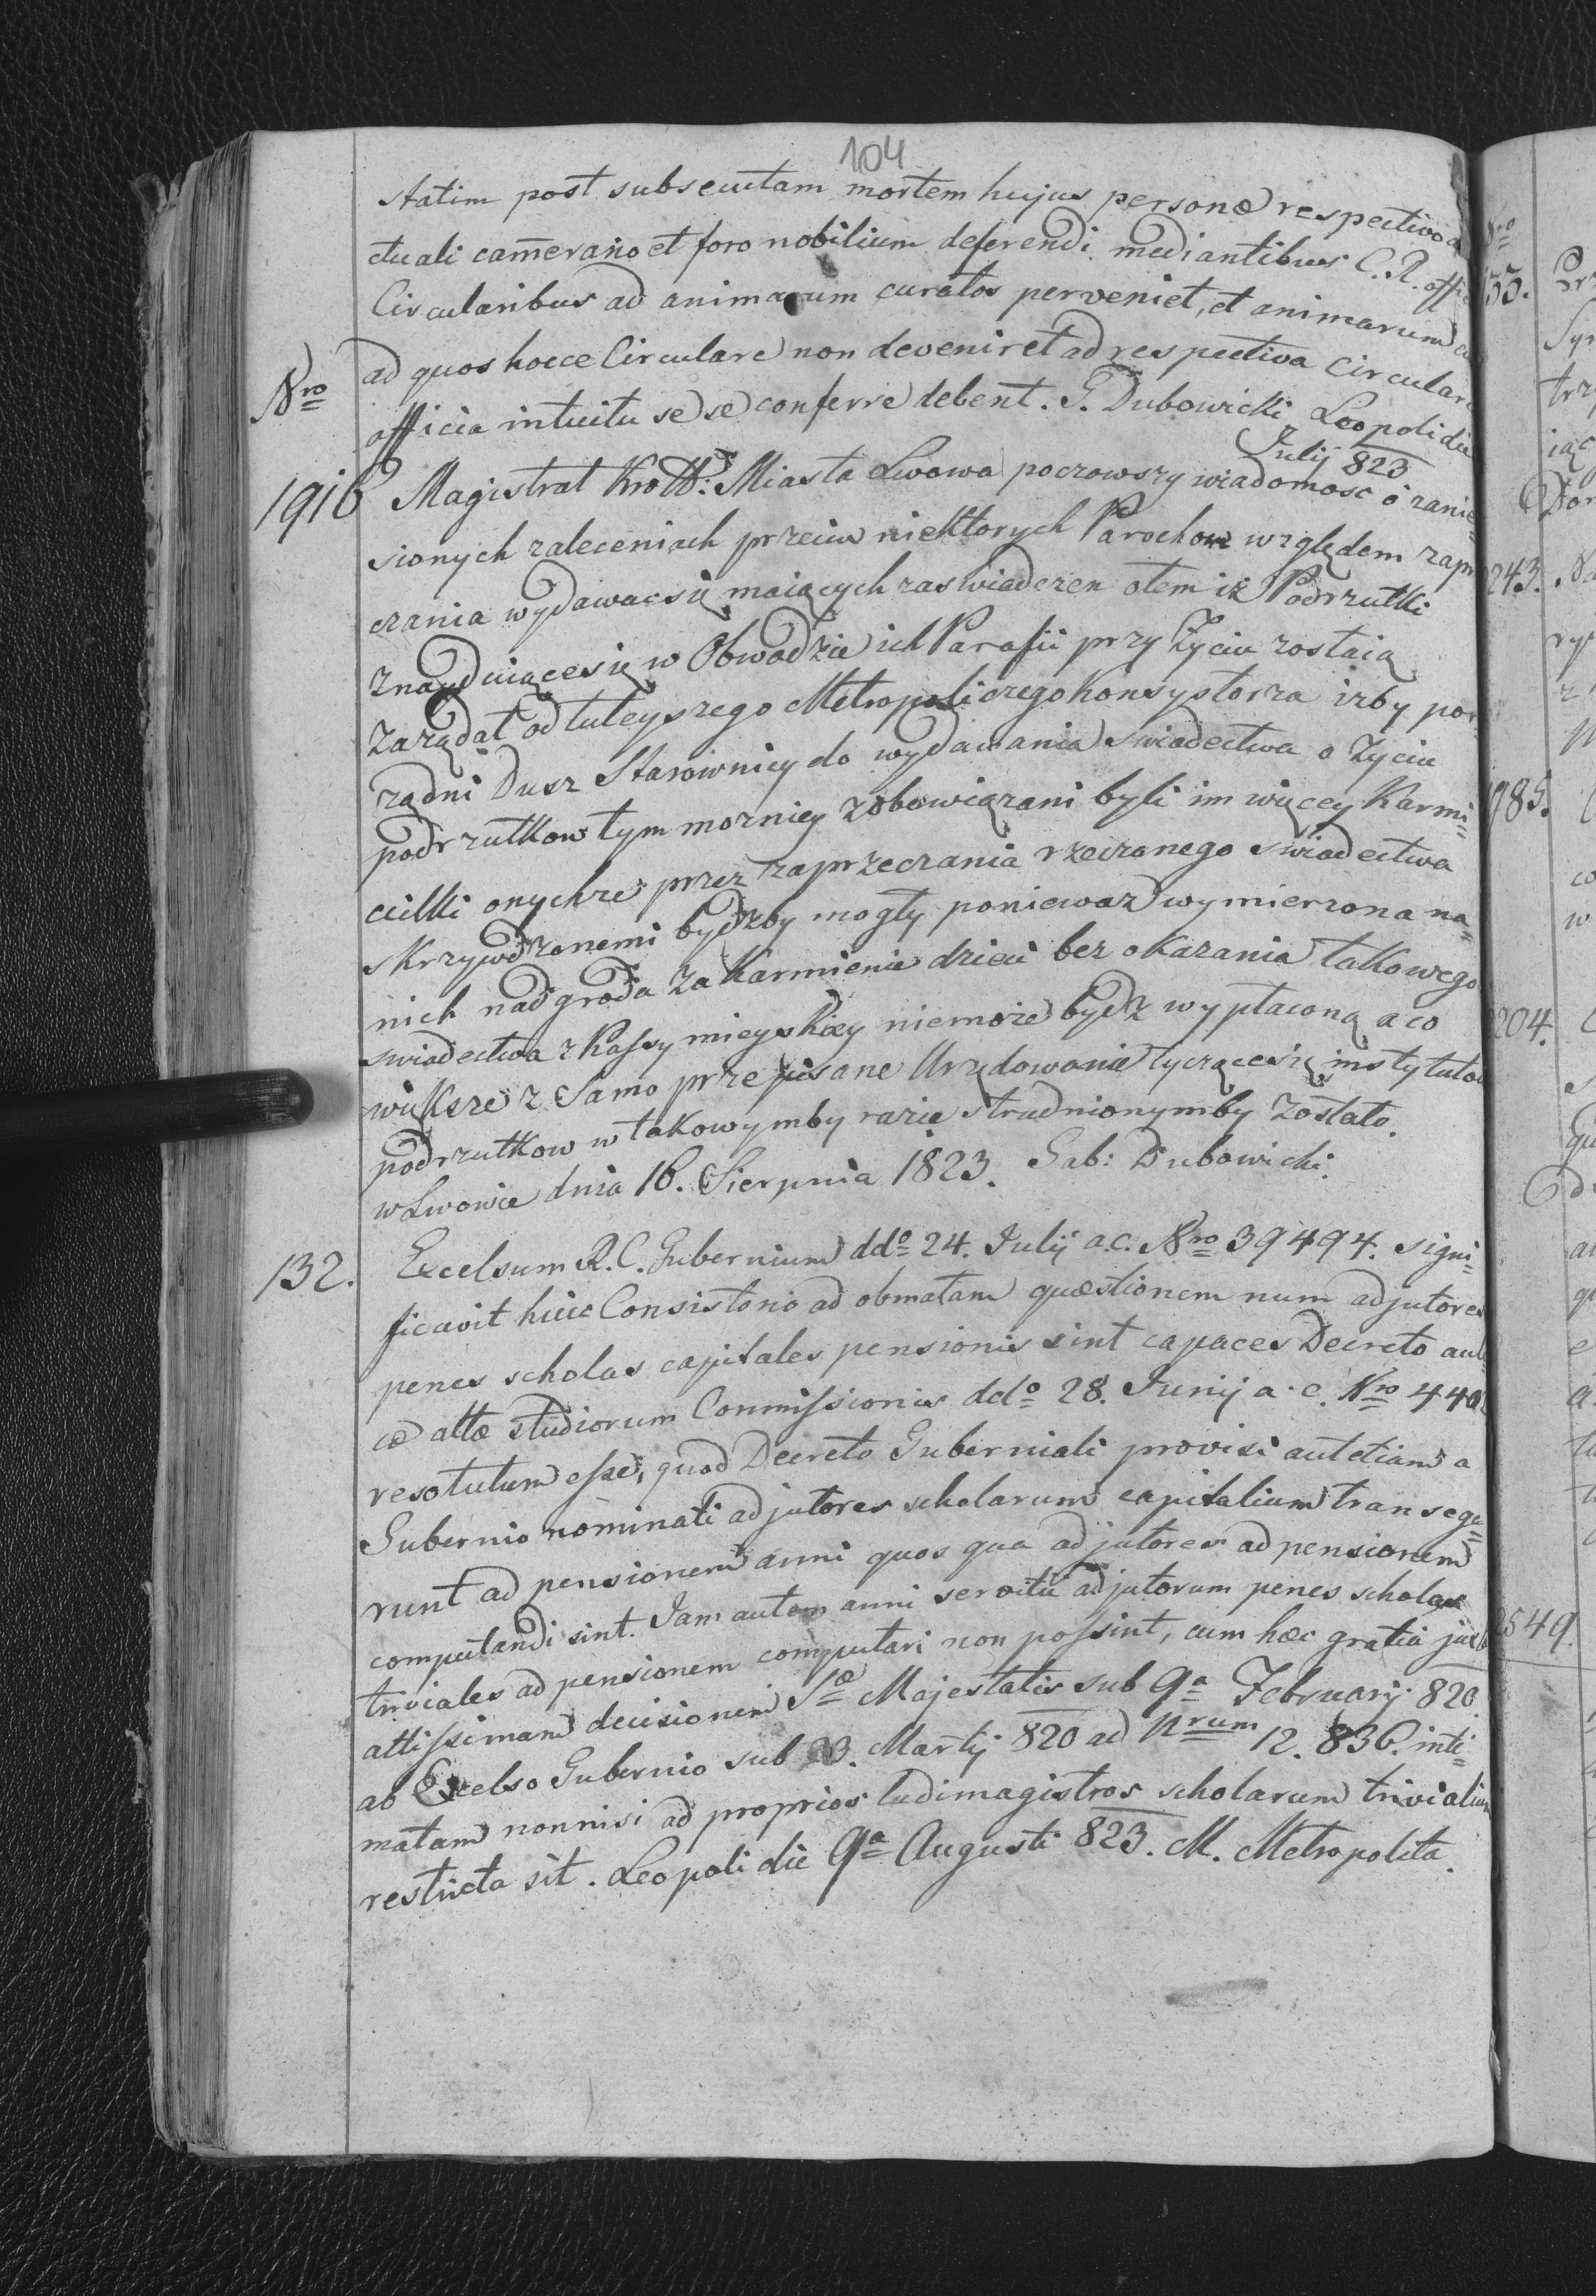 104
statim post subsecutam mortem hujus personæ respectivo
ctuali camerario et foro nobilium deferendi mediantibus C. R. offi
Circularibus ad animarum curatos perveniet, et animarum
ad quos hocce Circulare non deveniret ad respectiva Circular
Nro
officia intuitu se se conferre debent. G. Dubowicki Leopoli die
Julij 823
1916 Magistrat Kroll: Miasta Lwowa poczowszy wiadomosc o zanie=
sionych zaleceniach przeciw niektorych Parochow względem zapr
czania wydawać się maiących zaswiadczen otem iż Podrzutki
znayduiące się w Obwodzie ich Parafii przy Życiu zostaią
zaządał od tuteyszego Metropoliczego Konsystorza izby po=
rządni Dusz Starownicy do wydawania swiadectwa o Zyciu
podrzutkow tym mozniey zobowiązani byli im więcey Karmi=
cielki onychze przez zaprzeczania rzeczonego swiadectwa
skrzywdzonemi bydźby mogły poniewaz wymierzona na
nich nadgroda za Karmienie dzieci bez okazania takowego
swiadectwa z Kassy mieyskiey niemoże bydź wypłaconą a co
większe z Samo przepisane Urzędowanie tyczące się instytutow
podrzutkow w takowymby razie strudnionymby zostało.
w Lwowie dnia 16. Sierpnia 1823. Gab: Dubowicki
132. Excelsum R. C. Gubernium ddo 24. Julij a.c. Nro 39494. signi=
ficavit huic Consistorio ad obmotam quæstionem num adjutores
penes scholas capitales pensionis sint capaces Decreto auli
cæ altæ studiorum Commissionis ddo 28. Junij a. c. Nro 440
resolutum esse, quod Decreto Guberniali provisi aut etiam a
Gubernio nominati adjutores scholarum capitalium transege=
runt ad pensionem anni quos qua adjutores ad pensionem
computandi sint. Jam autem anni servitii adjutorum penes scholas
triviales ad pensionem computari non possint, cum hæc gratia juxta
altissimam decisionem Sæ Majestatis sub 9a Februarij 820
ab Excelso Gubernio sub 23. Martij 820 ad Nrum 12.836. inti=
matam nonnisi ad proprios ludimagistros scholarum trivialium
restricta sit. Leopoli die 9a Augusti 823. M. Metropolita.
Nro
55.
243.
985.
204.
2549.